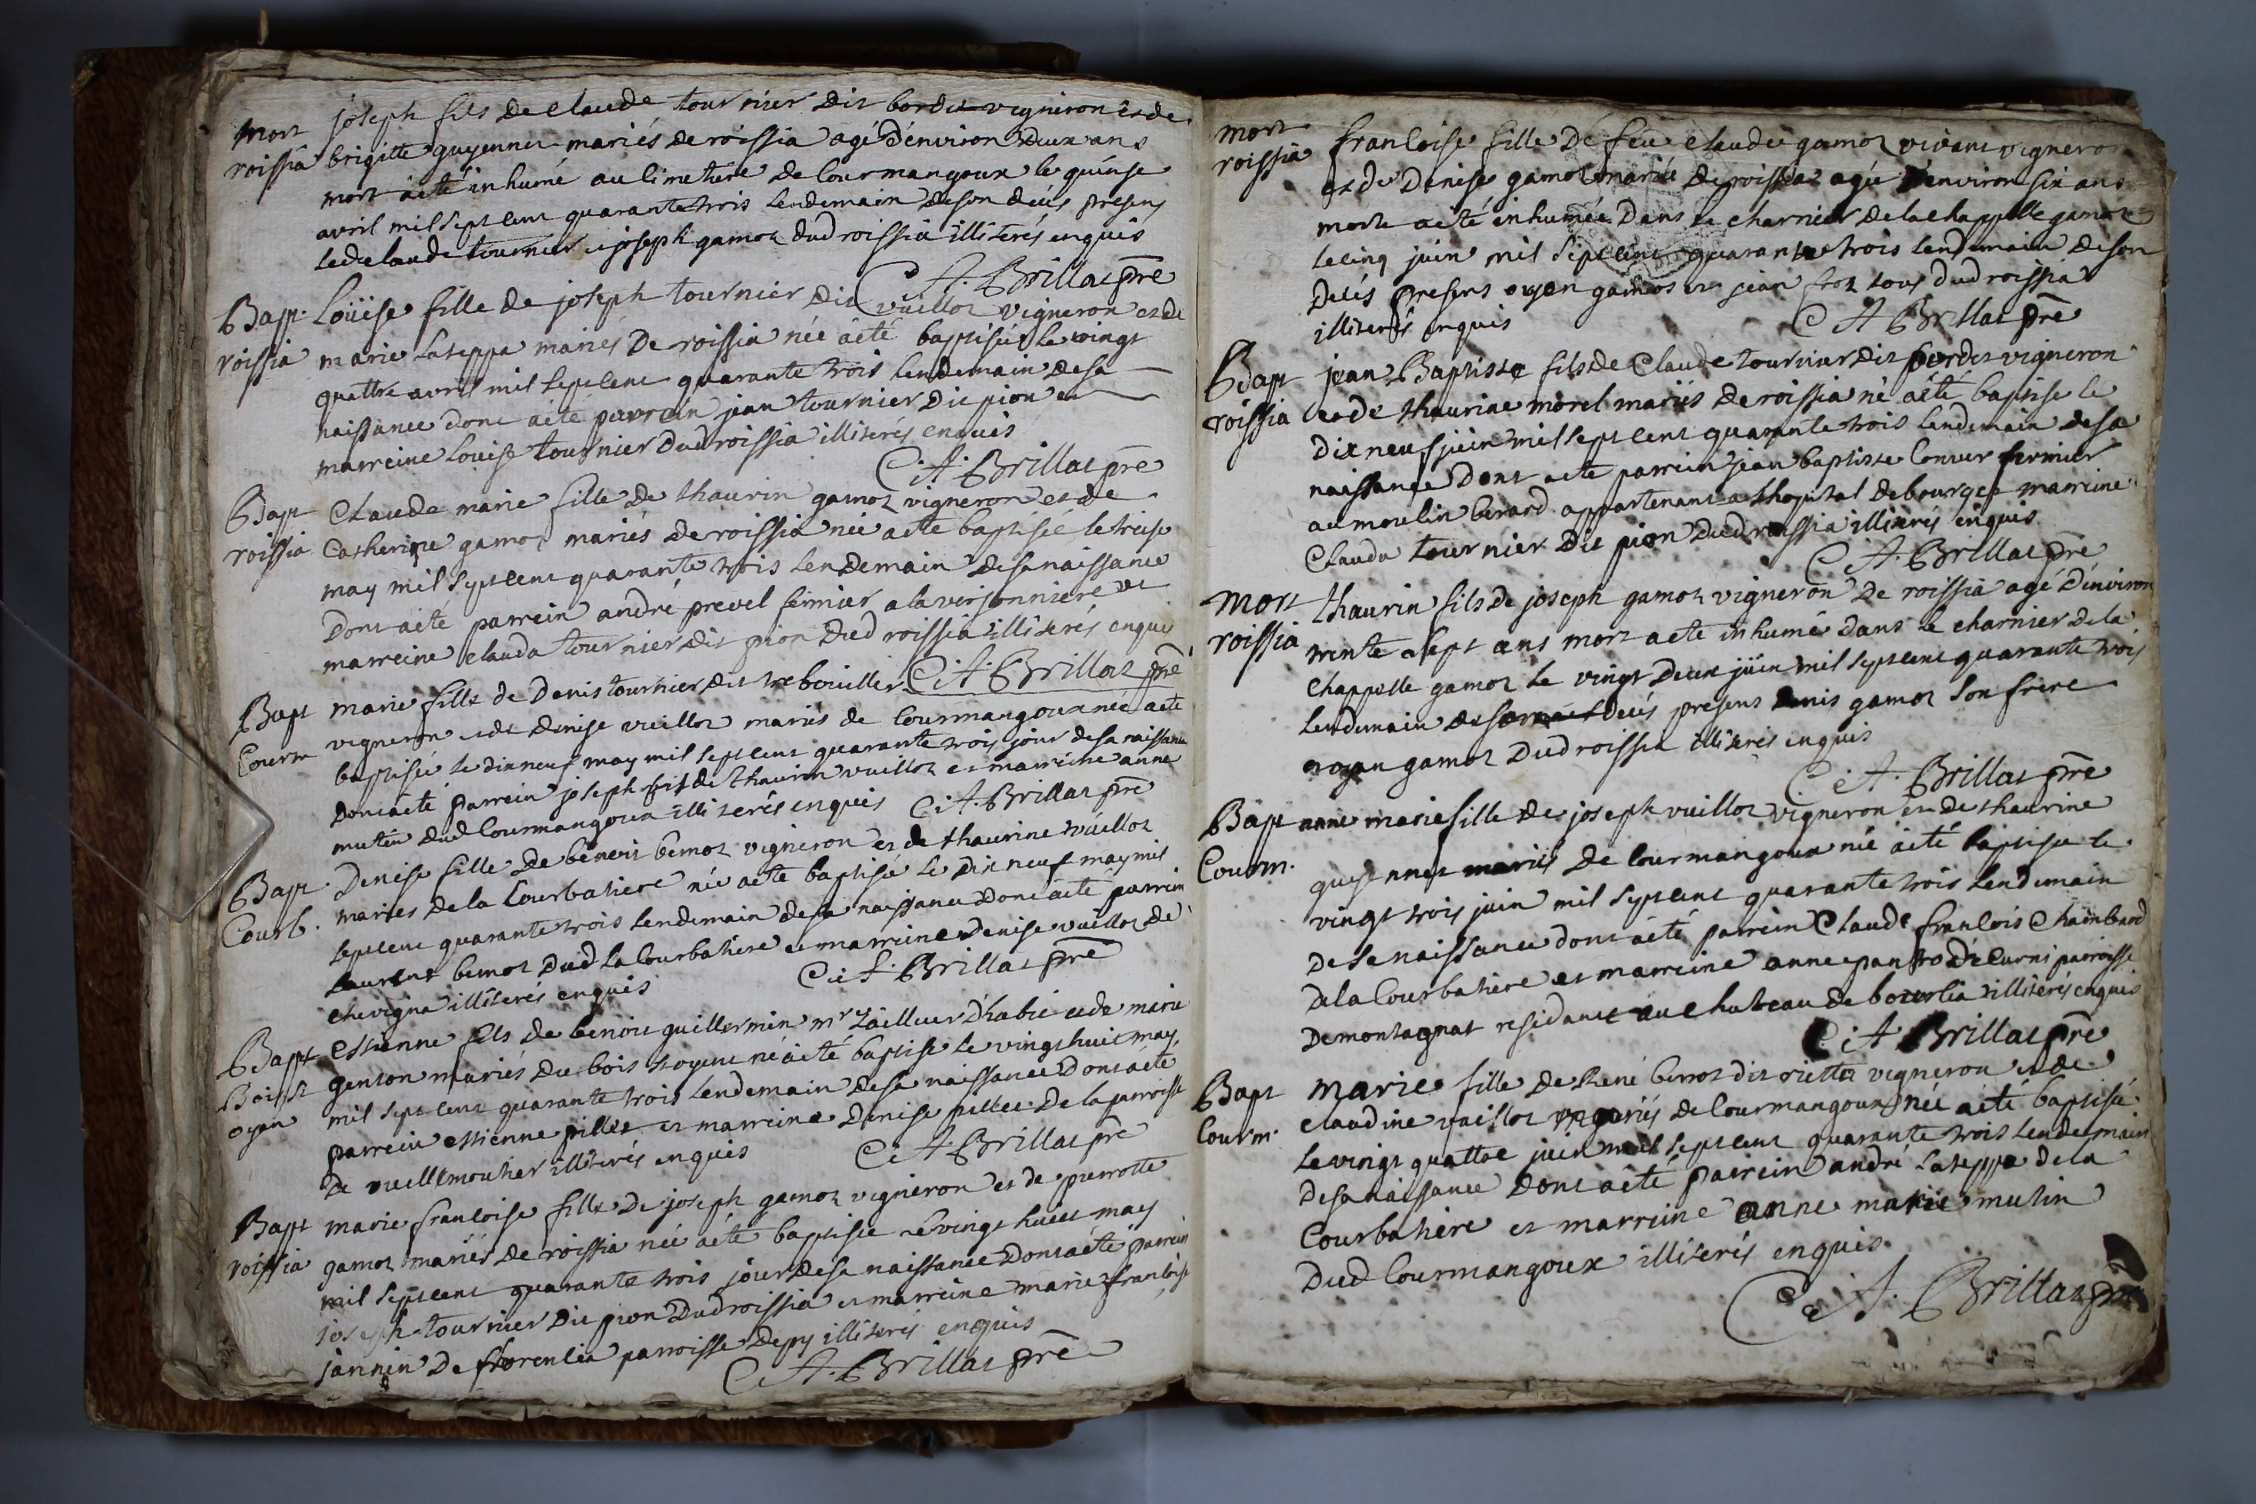 mort joseph fils de claude tournier dit bordet vigniron et de
roissia brigitte guyennet mariés de roissia agé d'environ deux ans
mort aété inhumé au cimetiere de Courmangoux le quinse
avril mil sept cent quarante trois lendemain de son decès presens
led claude tournier et joseph gamot dud roissia illiterés enquis
C. A. Brillat pre
Bapt. Loüise fille de joseph tournier dit vuillot vigneron et de
roissia marie Lateppa mariés de roissia née aété baptisée le vingt
quattre avril mil sept cent quarante trois lendemain de sa
naissance dont aété parrein jean tournier dit pion et
marreine Louise tournier dud roissia illiterés enquis
C. A. Brillat pre
Bapt Claude marie fille de thaurin gamot vigneron et de
roissia Catherine gamot mariés de roissia née aété baptisée le treise
may mil sept cent quarante trois lendemain de sa naissance
dont aété parrein andré prevel fermier a la verjonniere et
marreine clauda tournier dit pion dud roissia illiterés enquis
C. A. Brillat pre
Bapt marie fille de denis tournier dit trebouillet
Courm vigneron et de denise vuillot mariés de Courmangoux née aété
baptisée le dix neuf may mil sept cent quarante trois jour de sa naissance
dont aété parrein joseph fils de thaurin vuillot et marreine anne
mutin dud Courmangoux illiterés enquis C. A. Brillat pre
Bapt Denise fille de benoit bernot vigneron et de thaurine vuillot
Courb. mariés de la Courbatiere née aété baptisée le dix neuf may mil
sept cent quarante trois lendemain de sa naissance dont aété parrein
Laurent bernot dud la Courbatiere et marreine denise vuillot de
chevigna illiterés enquis C. A. Brillat pre
Bapt estienne fils de benoit guillermin mr tailleur d'habit et de marie
Bois st genton mariés du bois st oyent né aété baptisé le vingt huit may
oyan mil sept cent quarante trois lendemain de sa naissance dont aété
parrein estienne pillet et marreine denise pillet de la parroisse
de vuillemoutier illiterés enquis C. A. Brillat pre
Bapt marie francoise fille de joseph gamot vigneron et de pierrotte
roissia gamot mariés de roissia née aété baptisée le vingt huict may
mil sept cent quarante trois jour de sa naissance dont aété parrein
joseph tournier dit pion dud roissia et marreine marie francoise
jannin de parroisse de illiterés enquis
C. A. Brillat pre
mort francoise fille de feu claude gamot vivant vigneron
roissia et de denise gamot mariés de roissia agée d'environ six ans
morte aété inhumée dans le charnier de la chappelle gamot
le cinq juin mil sept cent quarante trois lendemain de son
decés presens oyan gamot et jean tous dud roissia
illiterés enquis C A Brillat pre
Bapt jean Baptiste fils de Claude tournier dit bordet vigneron
roissia et de thaurine morel mariés de roissia né aété baptisé le
dix neuf juin mil sept cent quarante trois lendemain de sa
naissance dont aété parrein jean baptiste Convert fermier
au moulin berard appartenant a lhopital de bourg et marreine
Clauda tournier dit pion dud roissia illiterés enquis
C A. Brillat pre
mort thaurin fils de joseph gamot vigneron de roissia agé d'environ
roissia trente sept ans mort aété inhumé dans le charnier de la
chappelle gamot le vingt deux juin mil sept cent quarante trois
lendemain de son decés presens denis gamot son frere
oyan gamot dud roissia illiterés enquis
C. A. Brillat pre
Bapt anne marie fille de joseph vuillot vigneron et de thaurine
Courm. guyennet mariés de Courmangoux née aété baptisée le
vingt trois juin mil sept cent quarante trois lendemain
de sa naissance dont aété parrein Claude francois Chambard
de la Courbatiere et marreine anne parroisse
de montagnat residante au chateau de illiterés enquis
C. A Brillat pre
Bapt marie fille de René bernot dit vigneron et de
Courm. claudine vuillot mariés de Courmangoux née aété baptisée
le vingt quattre juin mil sept cent quarante trois lendemain
de sa naissance dont aété parrein andré Lateppa de la
Courbatiere et marreine anne marie mutin
dud Courmangoux illiterés enquis
C. A. Brillat pre